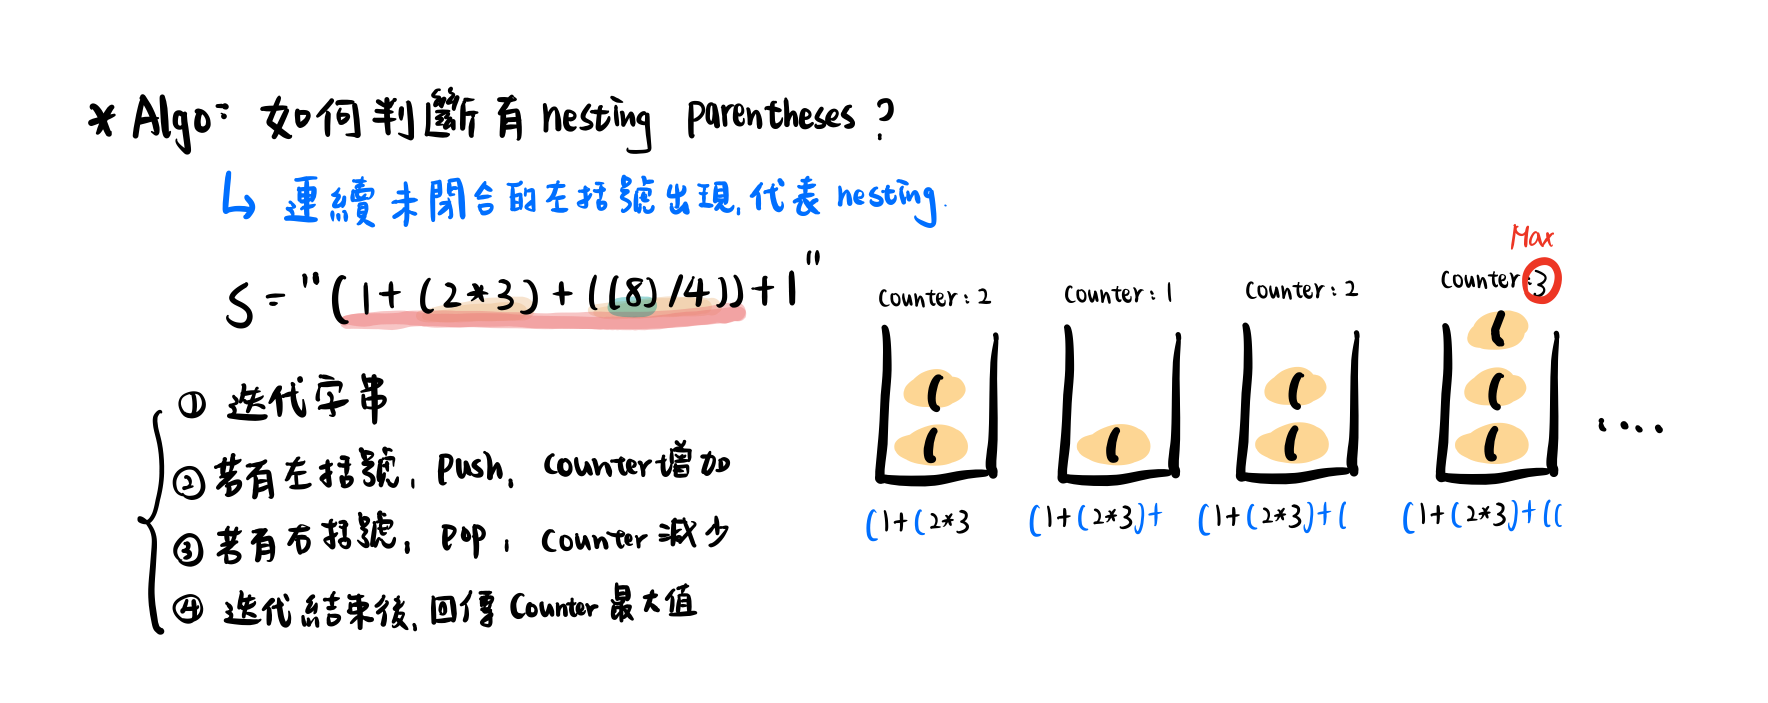 * Algo: 如何判斷有 nesting parentheses ?
↳ 連續未閉合的左括號出現, 代表 nesting.
S = "(1+(2*3)+((8)/4))+1"
① 迭代字串
② 若有左括號, push, counter增加
③ 若有右括號, pop, counter 減少
④ 迭代結束後, 回傳 Counter 最大值
Max
Counter: 2
Counter: 1
Counter: 2
Counter: 3
(
(
(
(
(
(
(
(
....
(1+(2*3
(1+(2*3)+
(1+(2*3)+(
(1+(2*3)+((